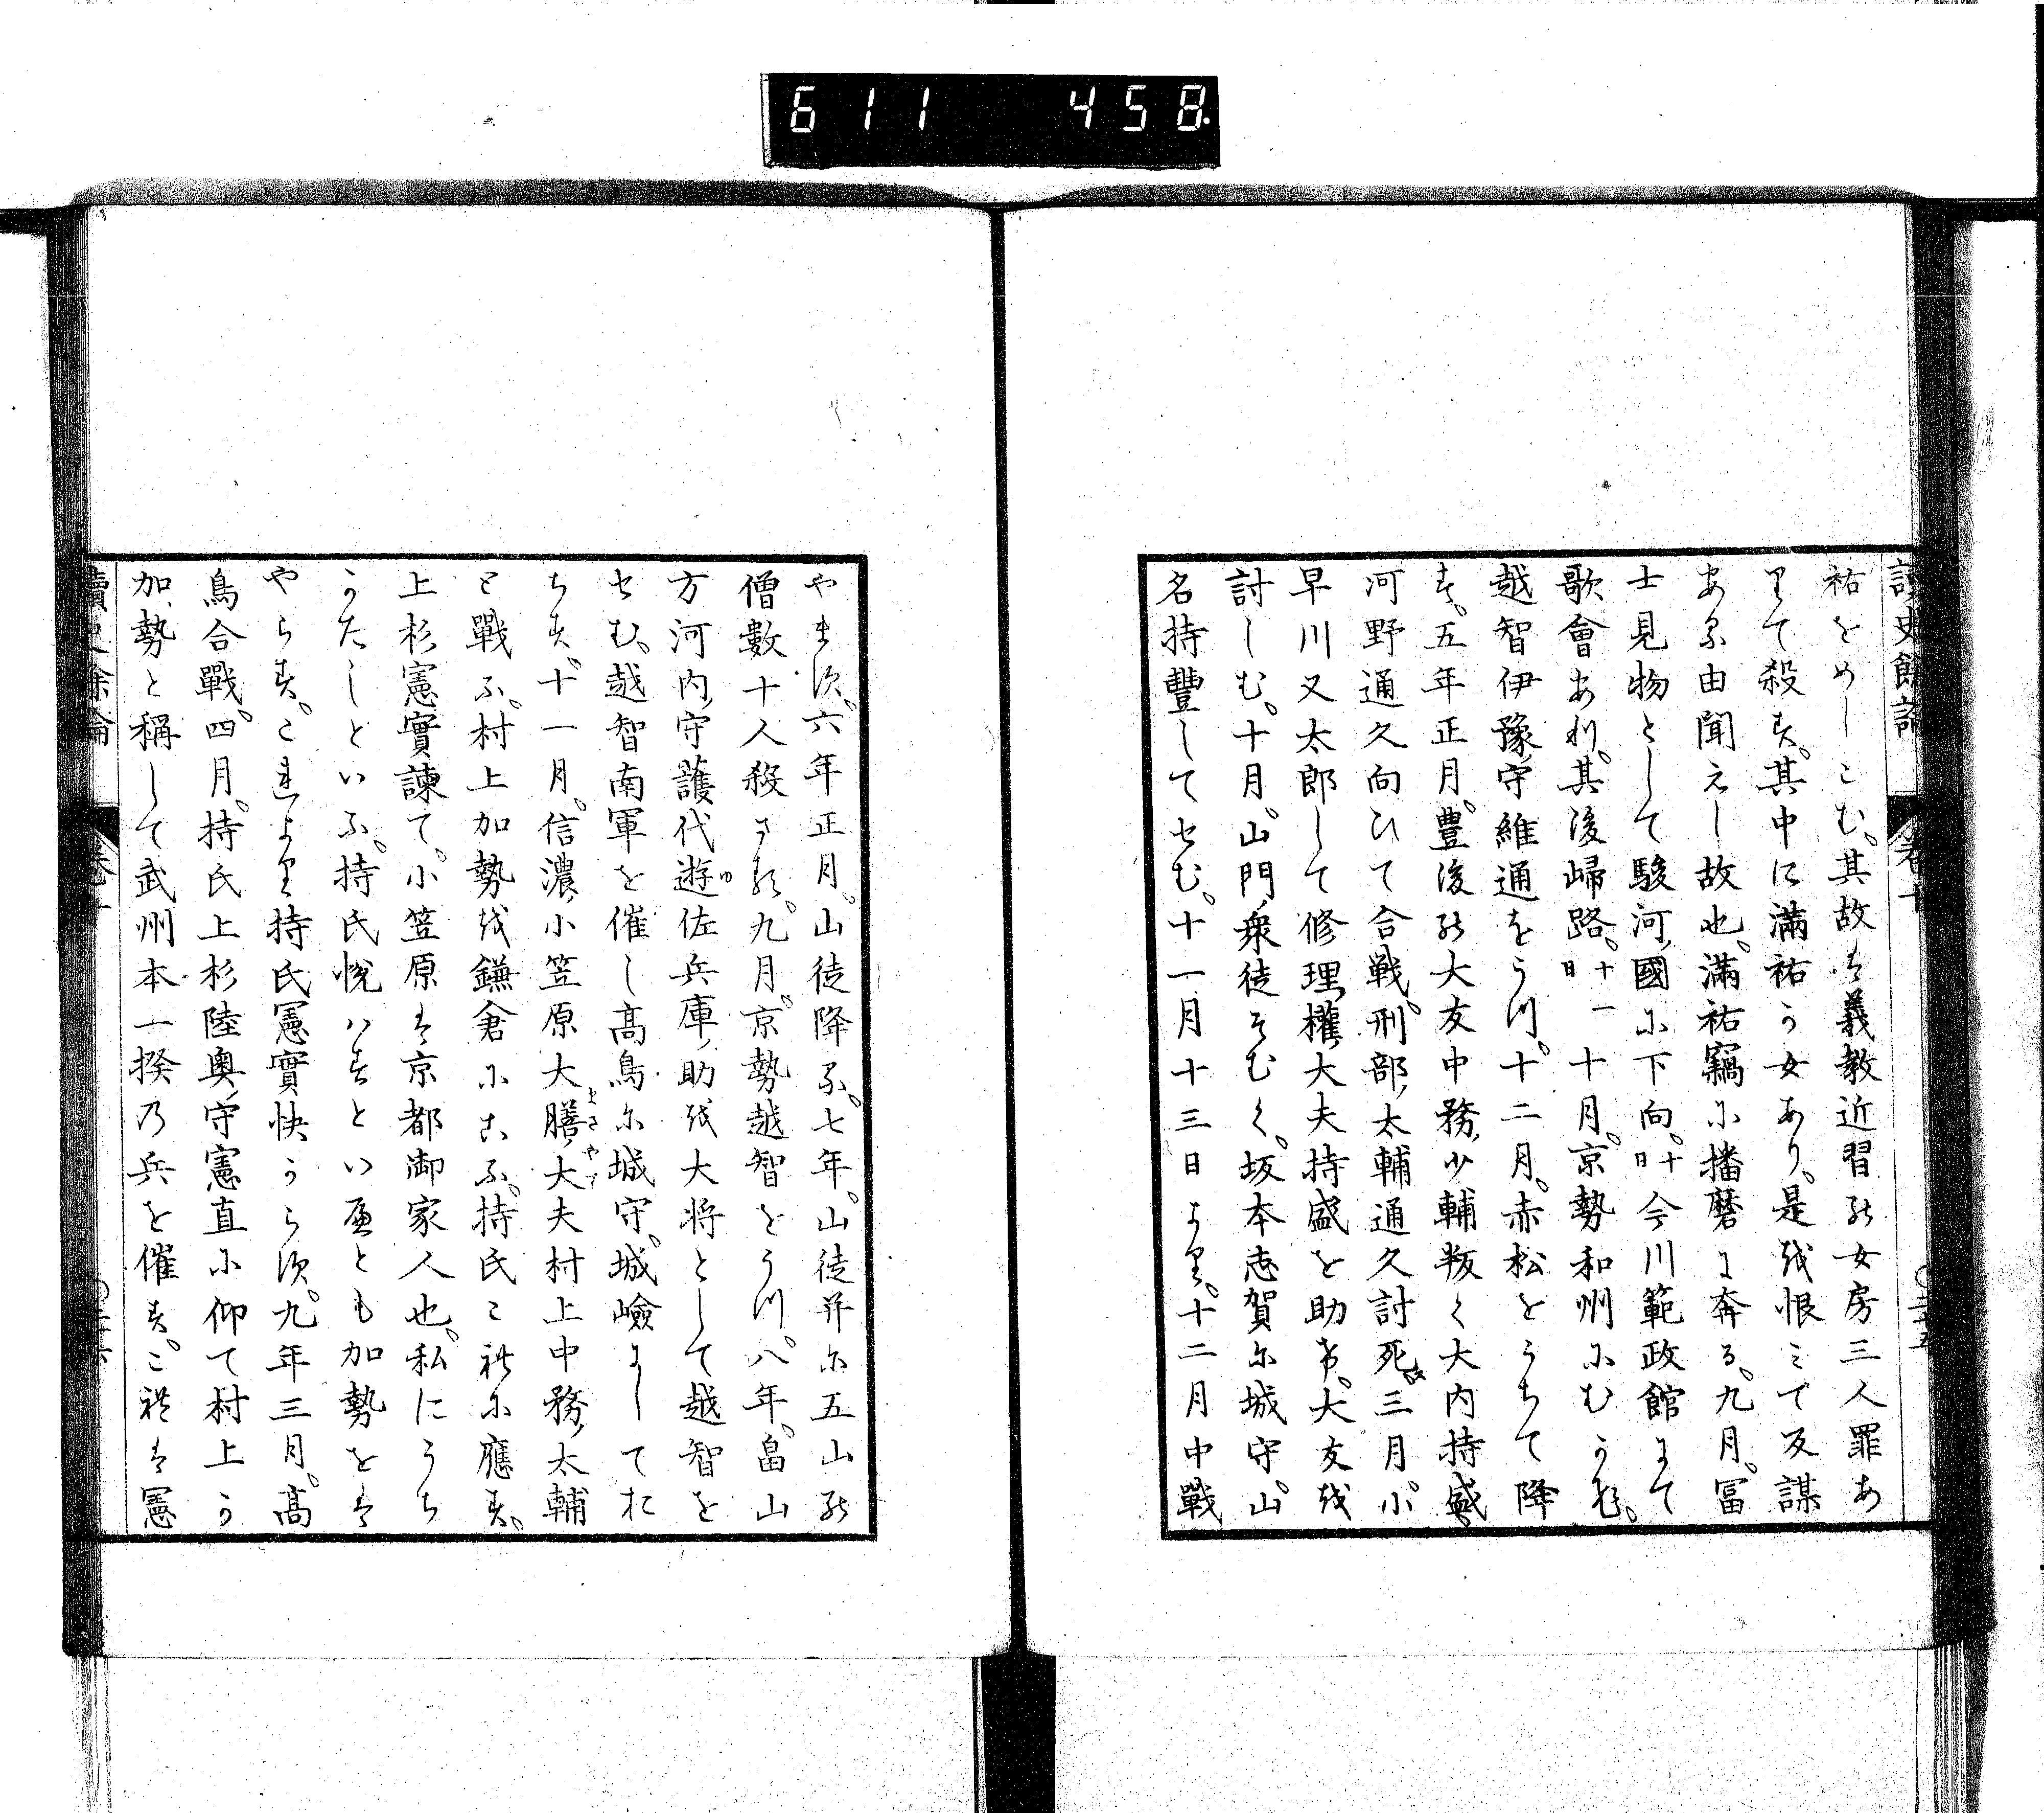 611 458.
讀史餘論 卷十
祐をめしこむ。其故は義教近習の女房三人罪あ
りて殺す。其中に滿祐か女あり。是を恨みて反謀
ある由聞えし故也。滿祐竊に播磨に奔る。九月。冨
士見物として駿河國に下向。十日今川範政館にて
歌會あり。其後歸路。十一日十月。京勢和州にむかふ。
越智伊豫守維通をうつ。十二月。赤松をうちて降
す。五年正月。豊後の大友中務少輔叛く大内持盛
河野通久向ひて合戦。刑部太輔通久討死。三月。小
早川又太郎して修理權大夫持盛を助け。大友を
討しむ。十月。山門衆徒そむく。坂本志賀に城守。山
名持豐してせむ。十一月十三日より。十二月中戰
やます。六年正月。山徒降る。七年。山徒并に五山の
僧數十人殺さる。九月。京勢越智をうつ。八年。畠山
方河内守護代遊佐兵庫助を大将として越智を
せむ。越智南軍を催し高鳥に城守。城嶮にしてお
ちす。十一月。信濃小笠原大膳大夫村上中務太輔
と戰ふ。村上加勢を鎌倉にこふ。持氏これに應す。
上杉憲實諫て。小笠原は京都御家人也。私にうち
かたしといふ。持氏悦はすといへとも加勢をは
やらす。これより持氏憲實快からす。九年三月。高
鳥合戰。四月。持氏上杉陸奥守憲直に仰て村上か
加勢と稱して武州本一揆の兵を催す。これは憲
讀史餘論 卷十